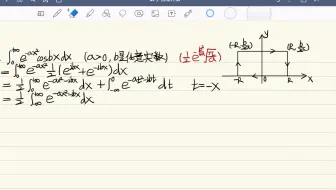 ∫₀^{+∞} e^{-ax²} cosbx dx (a>0, b是任意实数) (½ e^{-b²/4a} √(π/a))
= ∫₀^{+∞} e^{-ax²} ½ (e^{ibx} + e^{-ibx}) dx
= ½ ∫₀^{+∞} e^{-ax²-ibx} dx + ∫_{-∞}^0 e^{-at²-ibt} dt t=-x
= ½ ∫_{-∞}^{+∞} e^{-ax²-ibx} dx
y
(-R, b/2a)
(R, b/2a)
-R 0 R x